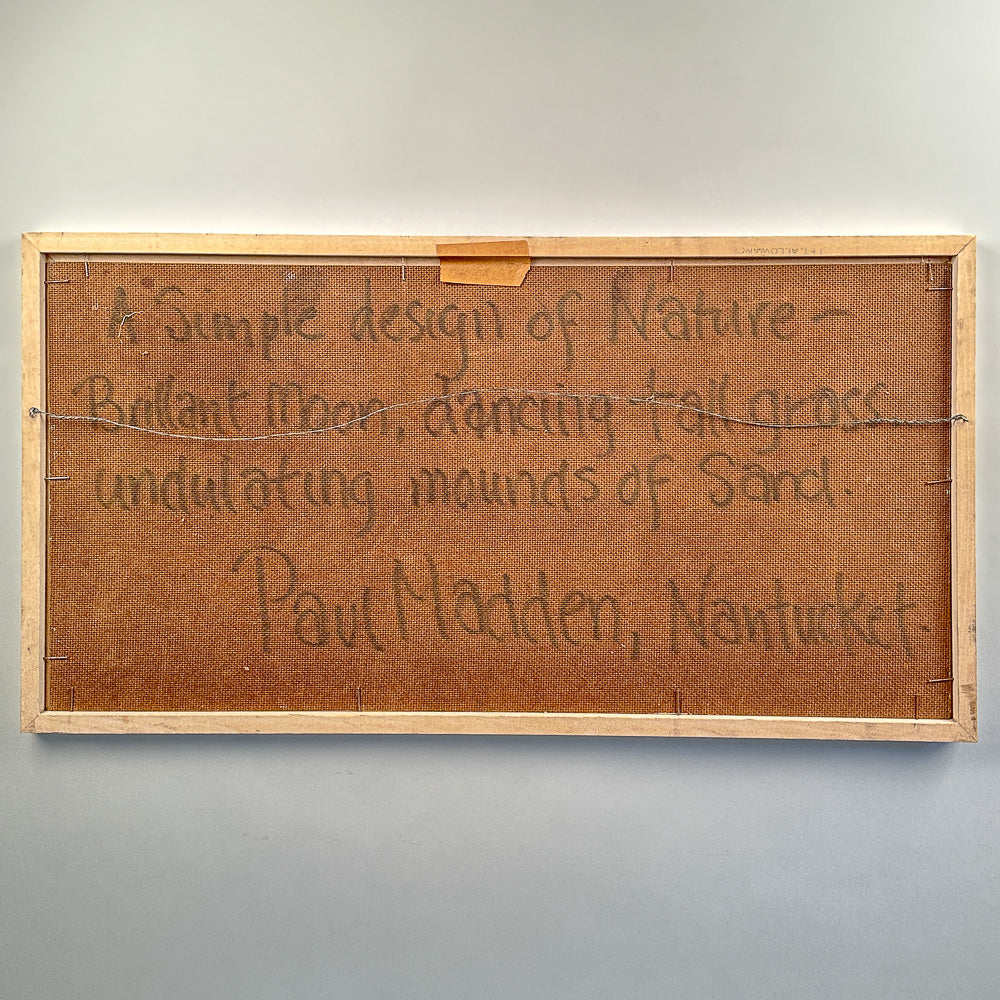 A Simple design of Nature -
Brillant Moon, dancing tall grass
undulating mounds of Sand.
Paul Madden, Nantucket.